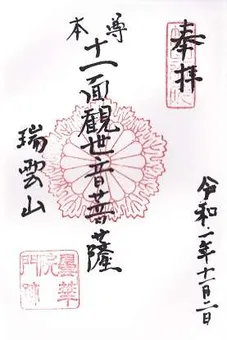 奉拝
令和一年十一月二日
本尊
十一面觀世音菩薩
瑞雲山
曇華院門跡